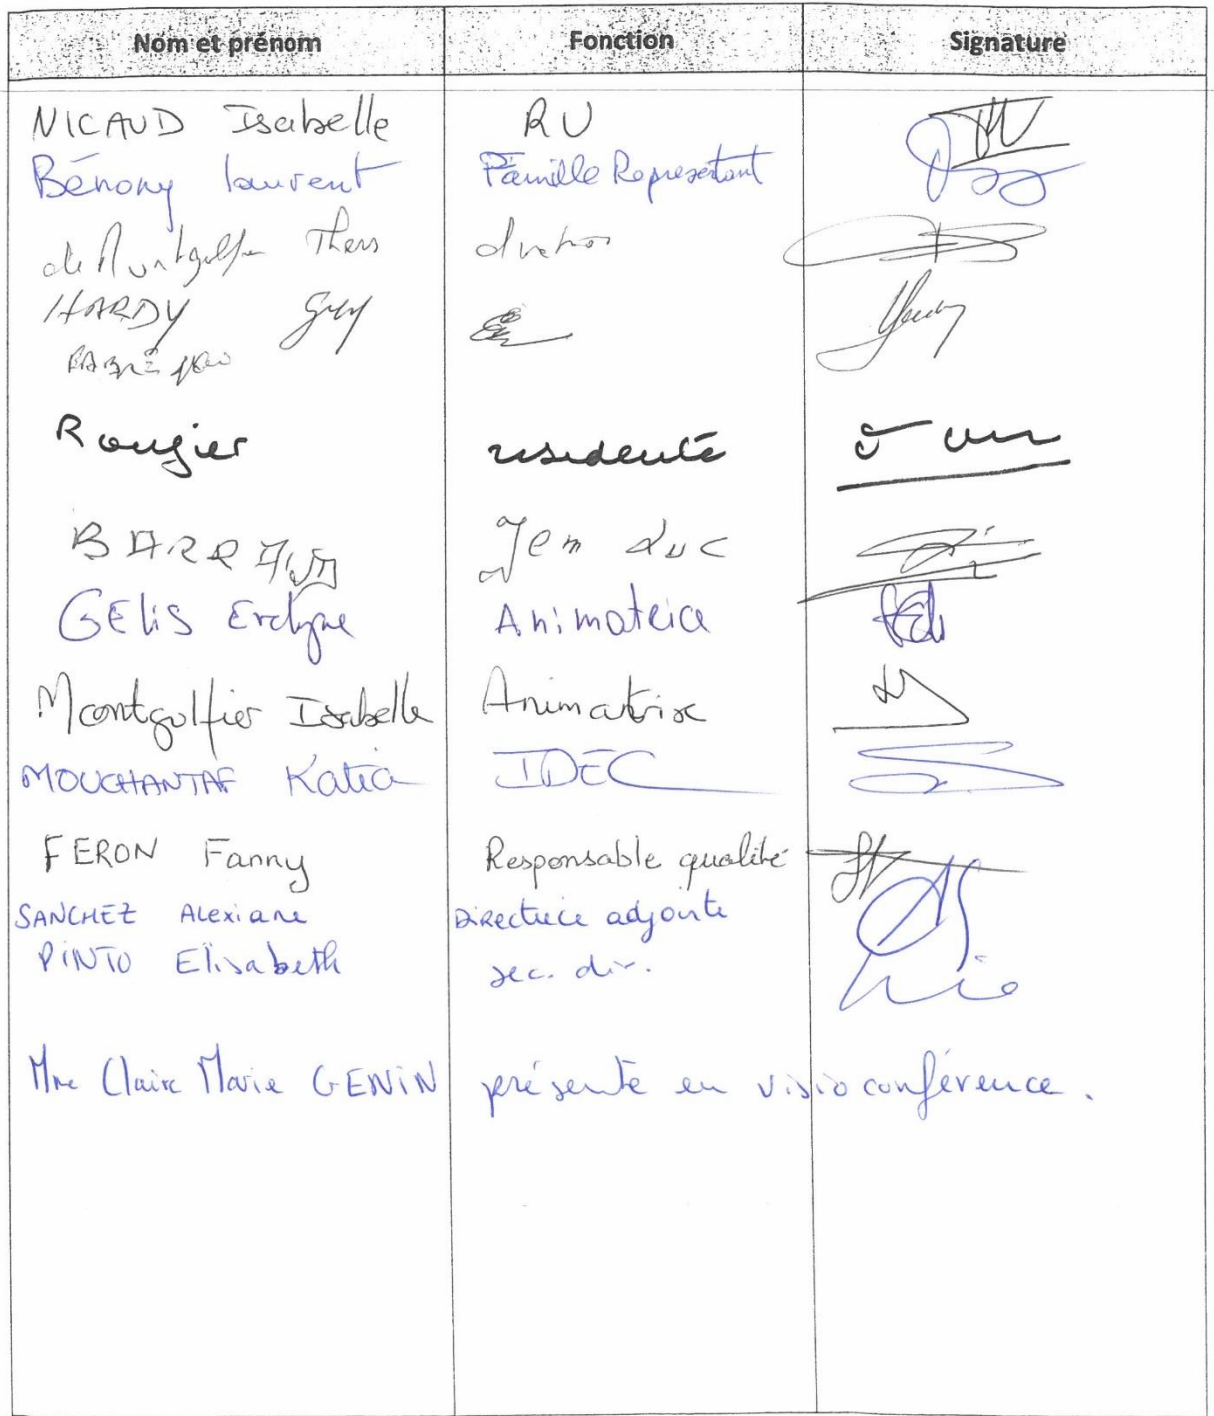 Nom et prénom Fonction Signature
NICAUD Isabelle RU
Bénony laurent Famille Representant
HARDY Guy
Rougier residente
BARRAUD Jem Luc
GELIS Evelyne Animatrice
Montgolfier Isabelle Animatrice
MOUCHANTAF Katia IDEC
FERON Fanny Responsable qualité
SANCHEZ Alexiane Directrice adjointe
PINTO Elisabeth sec. dir.
Mme Claire Marie GENIN présente en visioconférence.